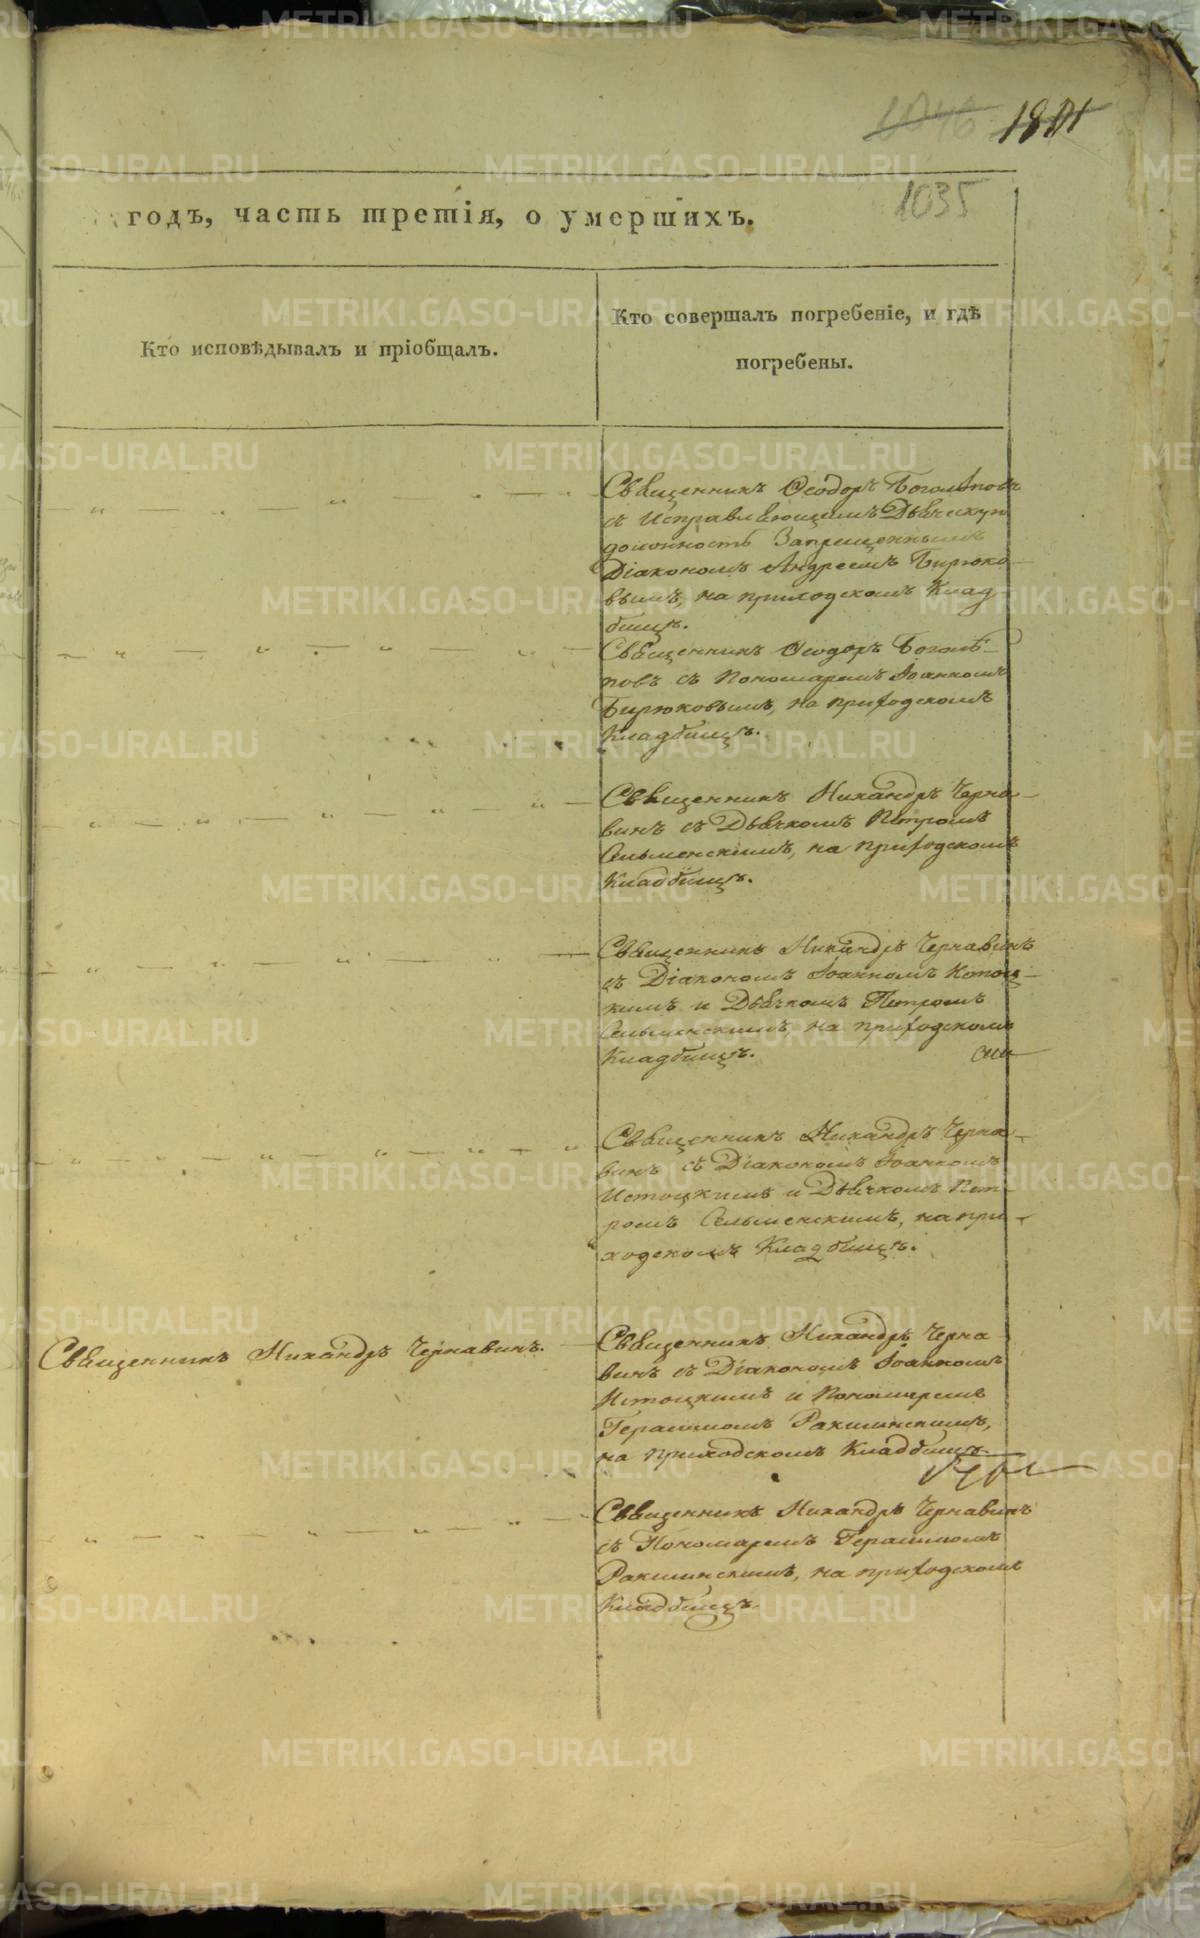 1035
годъ, часть третія, о умершихъ.
Кто исповѣдывалъ и пріобщалъ.
Кто совершалъ погребеніе, и гдѣ
погребены.
Священникъ Ѳеодоръ Боголѣповъ
съ Исправляющимъ Дьяческую
должность Запрещеннымъ
Діакономъ Андреемъ Бирюко-
вымъ, на приходскомъ Клад-
бищѣ.
Священникъ Ѳеодоръ Боголѣ-
повъ съ Пономаремъ Іоанномъ
Бирюковымъ, на приходскомъ
Кладбищѣ.
Священникъ Никандръ Черна-
винъ съ Дьячкомъ Петромъ
Сельменскимъ, на приходскомъ
Кладбищѣ.
Священникъ Никандръ Чернавинъ
съ Діакономъ Іоанномъ Истоц-
кимъ и Дьячкомъ Петромъ
Сельменскимъ, на приходскомъ
Кладбищѣ.
Священникъ Никандръ Черна-
винъ съ Діакономъ Іоанномъ
Истоцкимъ и Дьячкомъ Пет-
ромъ Сельменскимъ, на при-
ходскомъ Кладбищѣ.
Священникъ Никандръ Чернавинъ.
Священникъ Никандръ Черна
винъ съ Діакономъ Іоанномъ
Истоцкимъ и Пономаремъ
Герасимомъ Ракшинскимъ,
на приходскомъ Кладбищѣ.
Священникъ Никандръ Чернавинъ
съ Пономаремъ Герасимомъ
Ракшинскимъ, на приходскомъ
Кладбищѣ.
METRIKI.GASO-URAL.RU